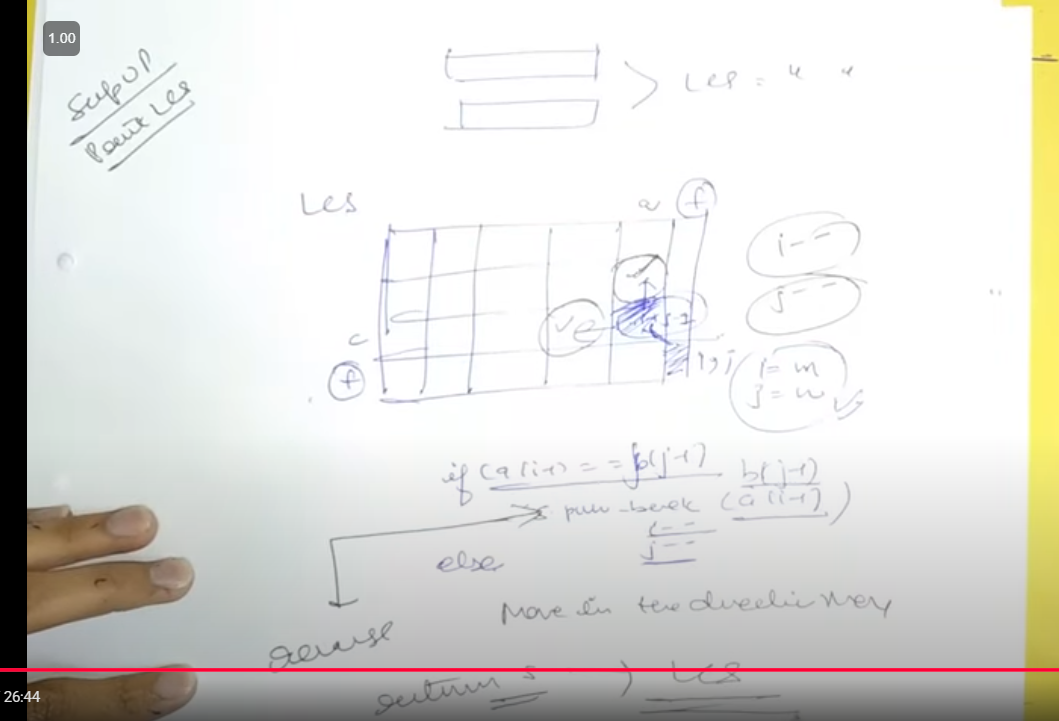 1.00
LCS = " "
Print LCS
LCS
a f
i--
j--
c
f
i, j
i = m
j = n
if (a(i-1) == b(j-1)
b(j-1)
push-back (a(i-1))
i--
j--
else
Move in the direction Max
reverse
return s
LCS
26:44